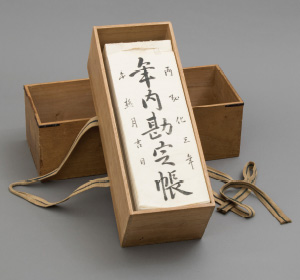 丙弘化三年
年内勘定帳
午月吉日